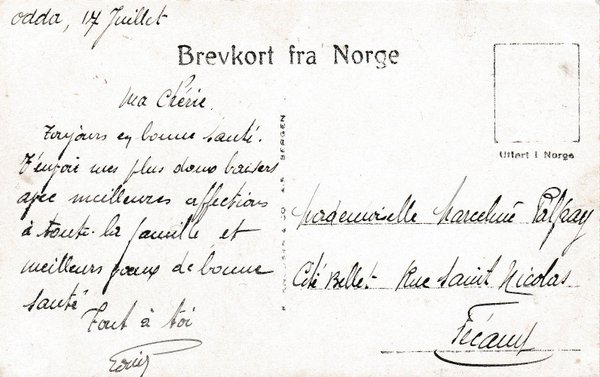 Odda, 17 Juillet
Brevkort fra Norge
Ma Chérie.
Toujours en bonne santé.
J'envoie mes plus doux baisers
avec meilleures affections
à toute la famille et
meilleurs vœux de bonne
santé
Tout à toi
BERGEN
Utført i Norge
Mademoiselle Marceline
Cité Bellet Rue Saint Nicolas
Fécamp